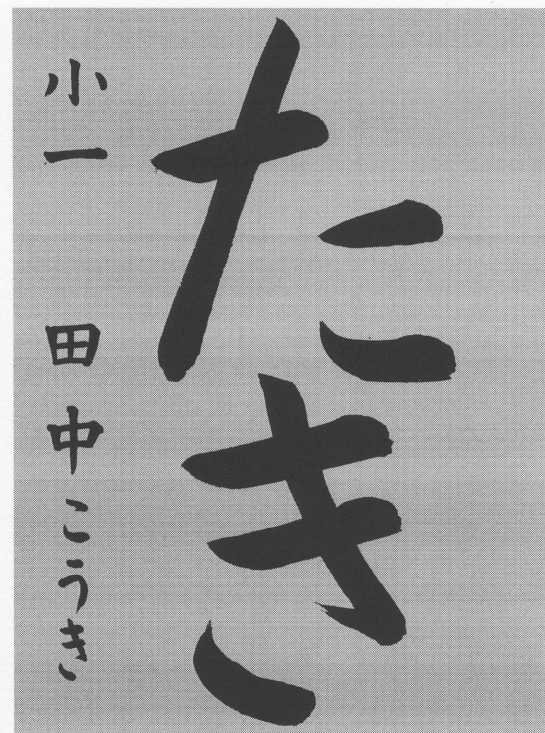 たき
小一 田中こうき